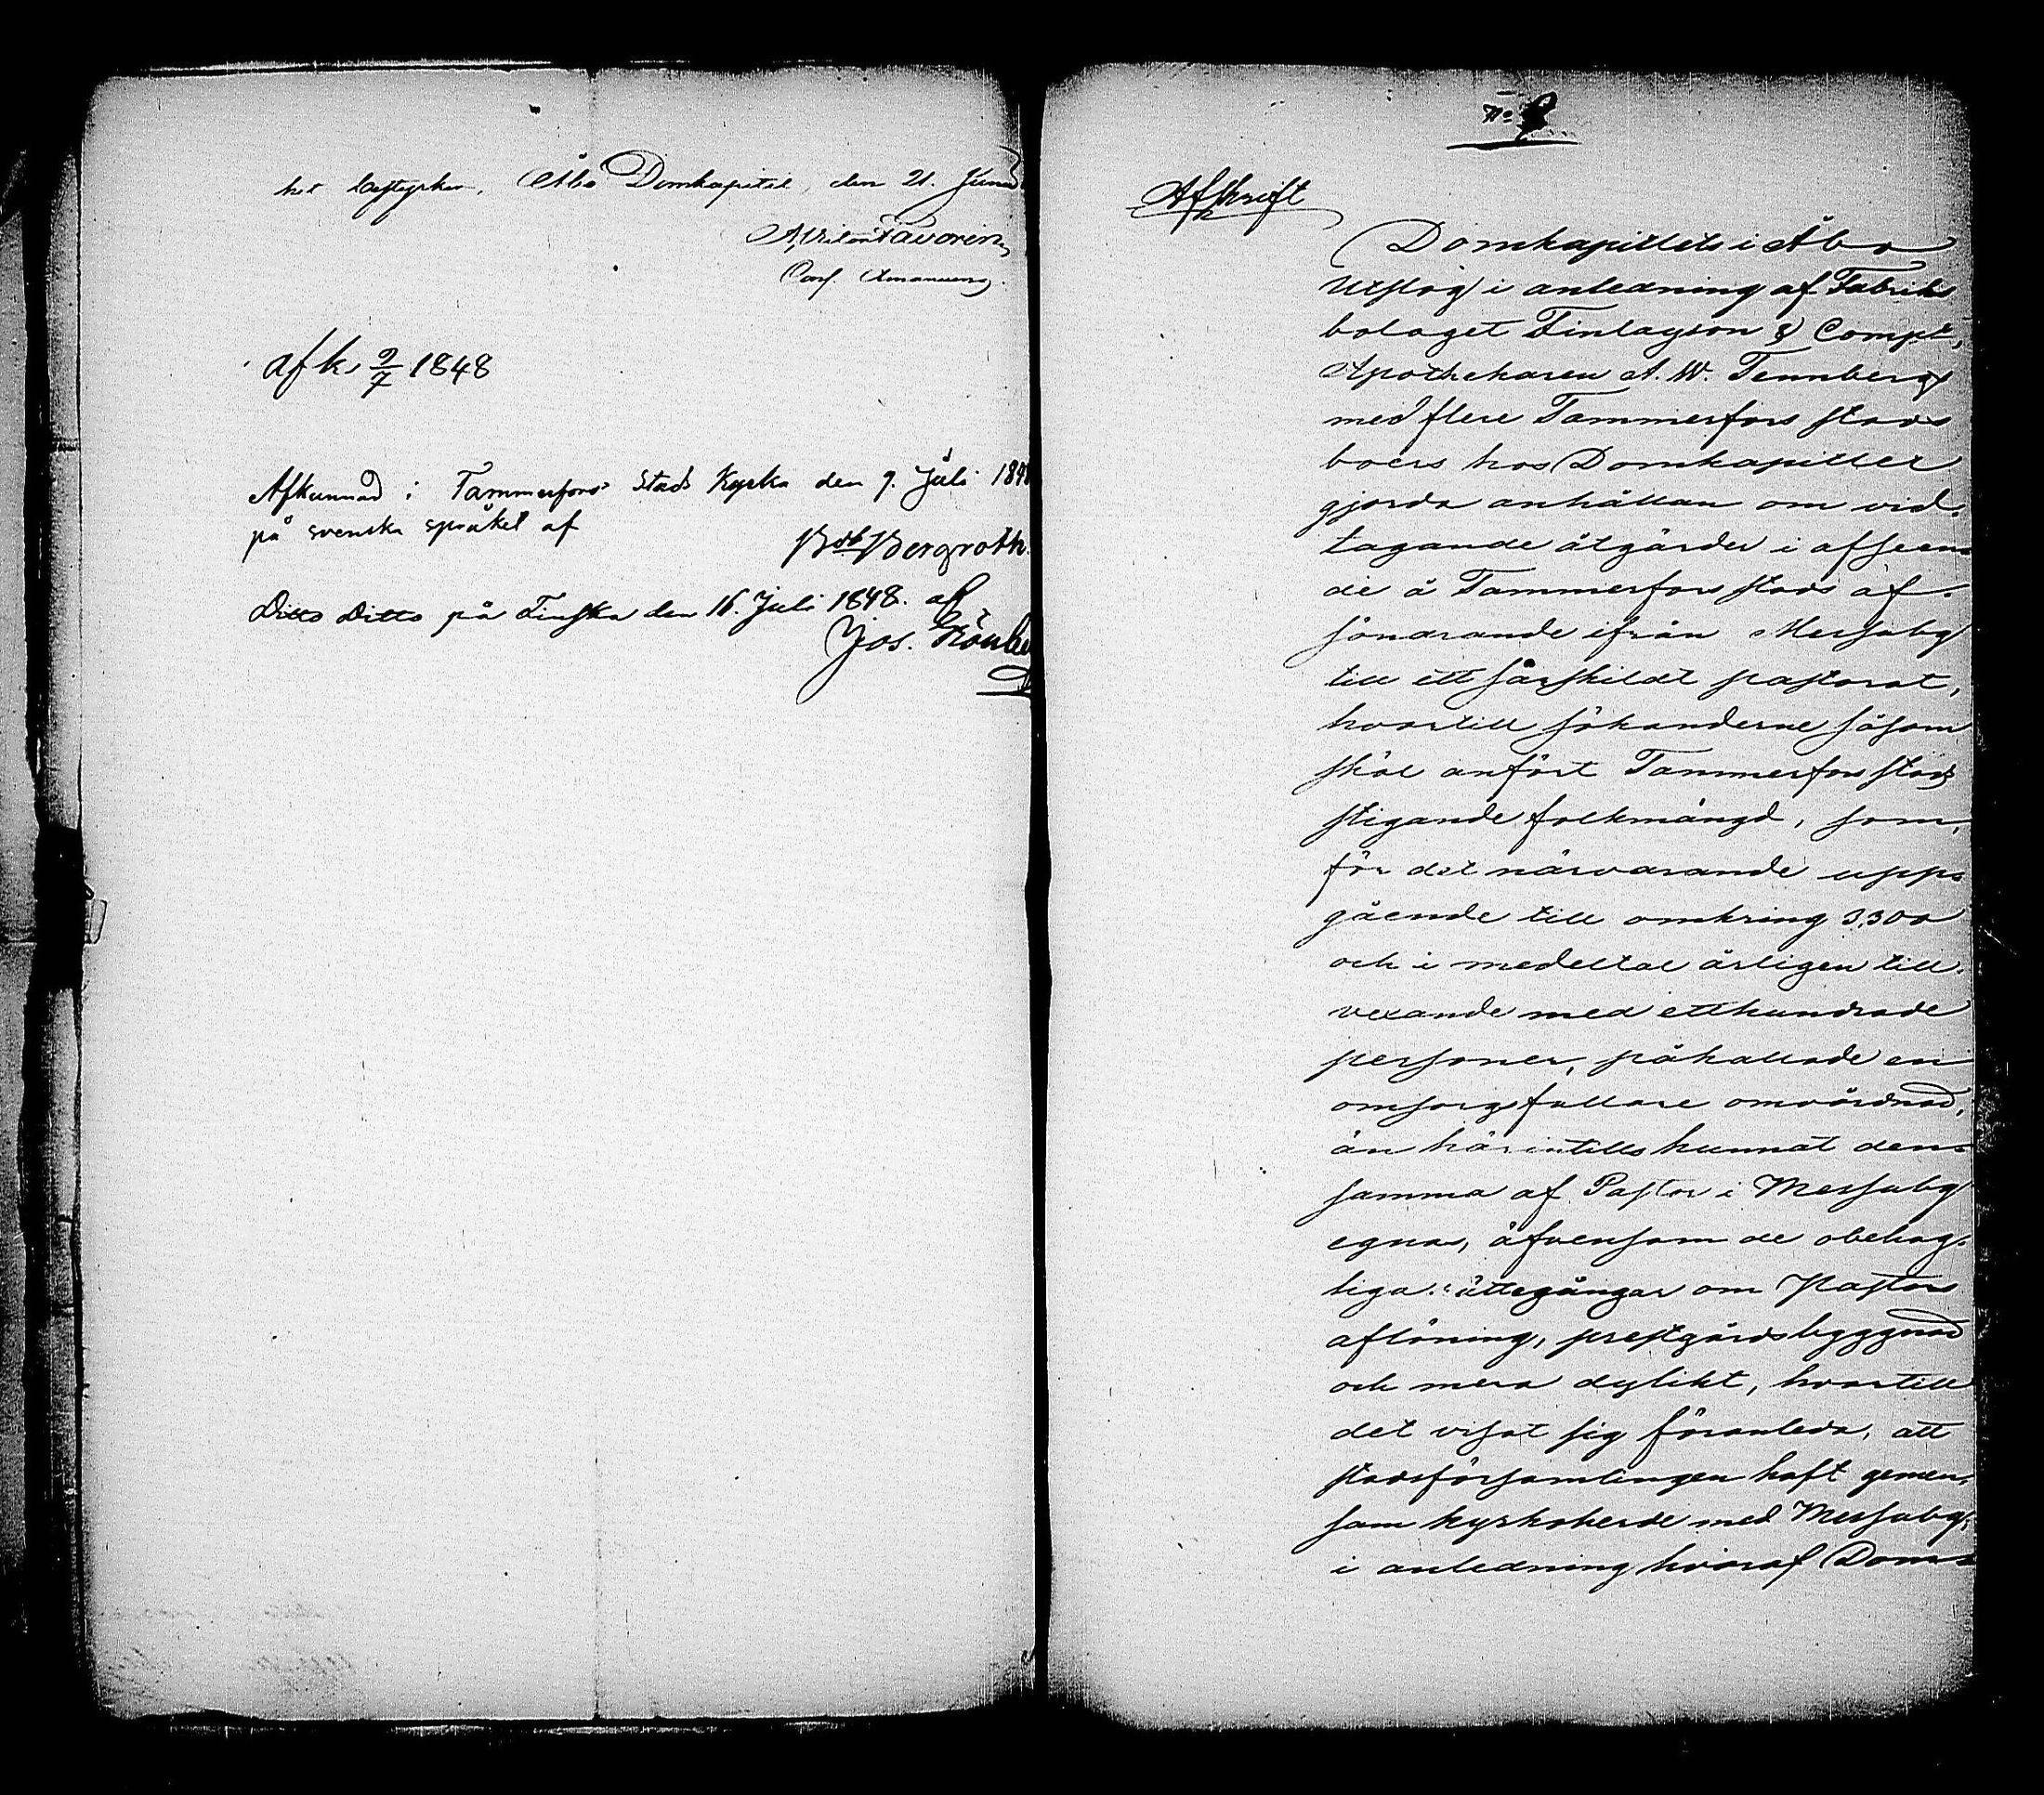 het. Åbo Domkapitel, den 21. Junii
afk. 9/7 1848
Afkunnad i Tammerfors Stads Kyrka den 9. Juli 1848
på svenska språket af
Bergroth.
Ditto Ditto på Finska den 16. Juli 1848. af
Jos. Grönbe
No
Afskrift
Domkapitlets i Åbo
Utslag i anledning af Fabriks
bolaget Finlayson & Compe,
Apothekaren A. W. Tennberg
med flere Tammerfors stads
boers hos Domkapitlet
gjorda anhållan om vid-
tagande åtgärder i afseen-
de å Tammerfors stads af-
söndrande ifrån Messuby
till ett särskildt pastorat,
hvartill sökanderne såsom
skäl anfört Tammerfors stads
stigande folkmängd, som,
för det närvarande upp-
gående till omkring 3,300
och i medeltal årligen till-
vexande med etthundrade
personer, påkallade en
omsorgsfullare omvårdnad,
än härintills kunnat den-
samma af Pastor i Messuby
egnas, äfvensom de obehag-
liga rättegångar om Pastors
aflöning, prestgårdsbyggnad
och mera dylikt, hvartill
det visat sig föranleda, att
stadsförsamlingen haft gemen-
sam kyrkoherde med Messuby;
i anledning hvaraf Dom-